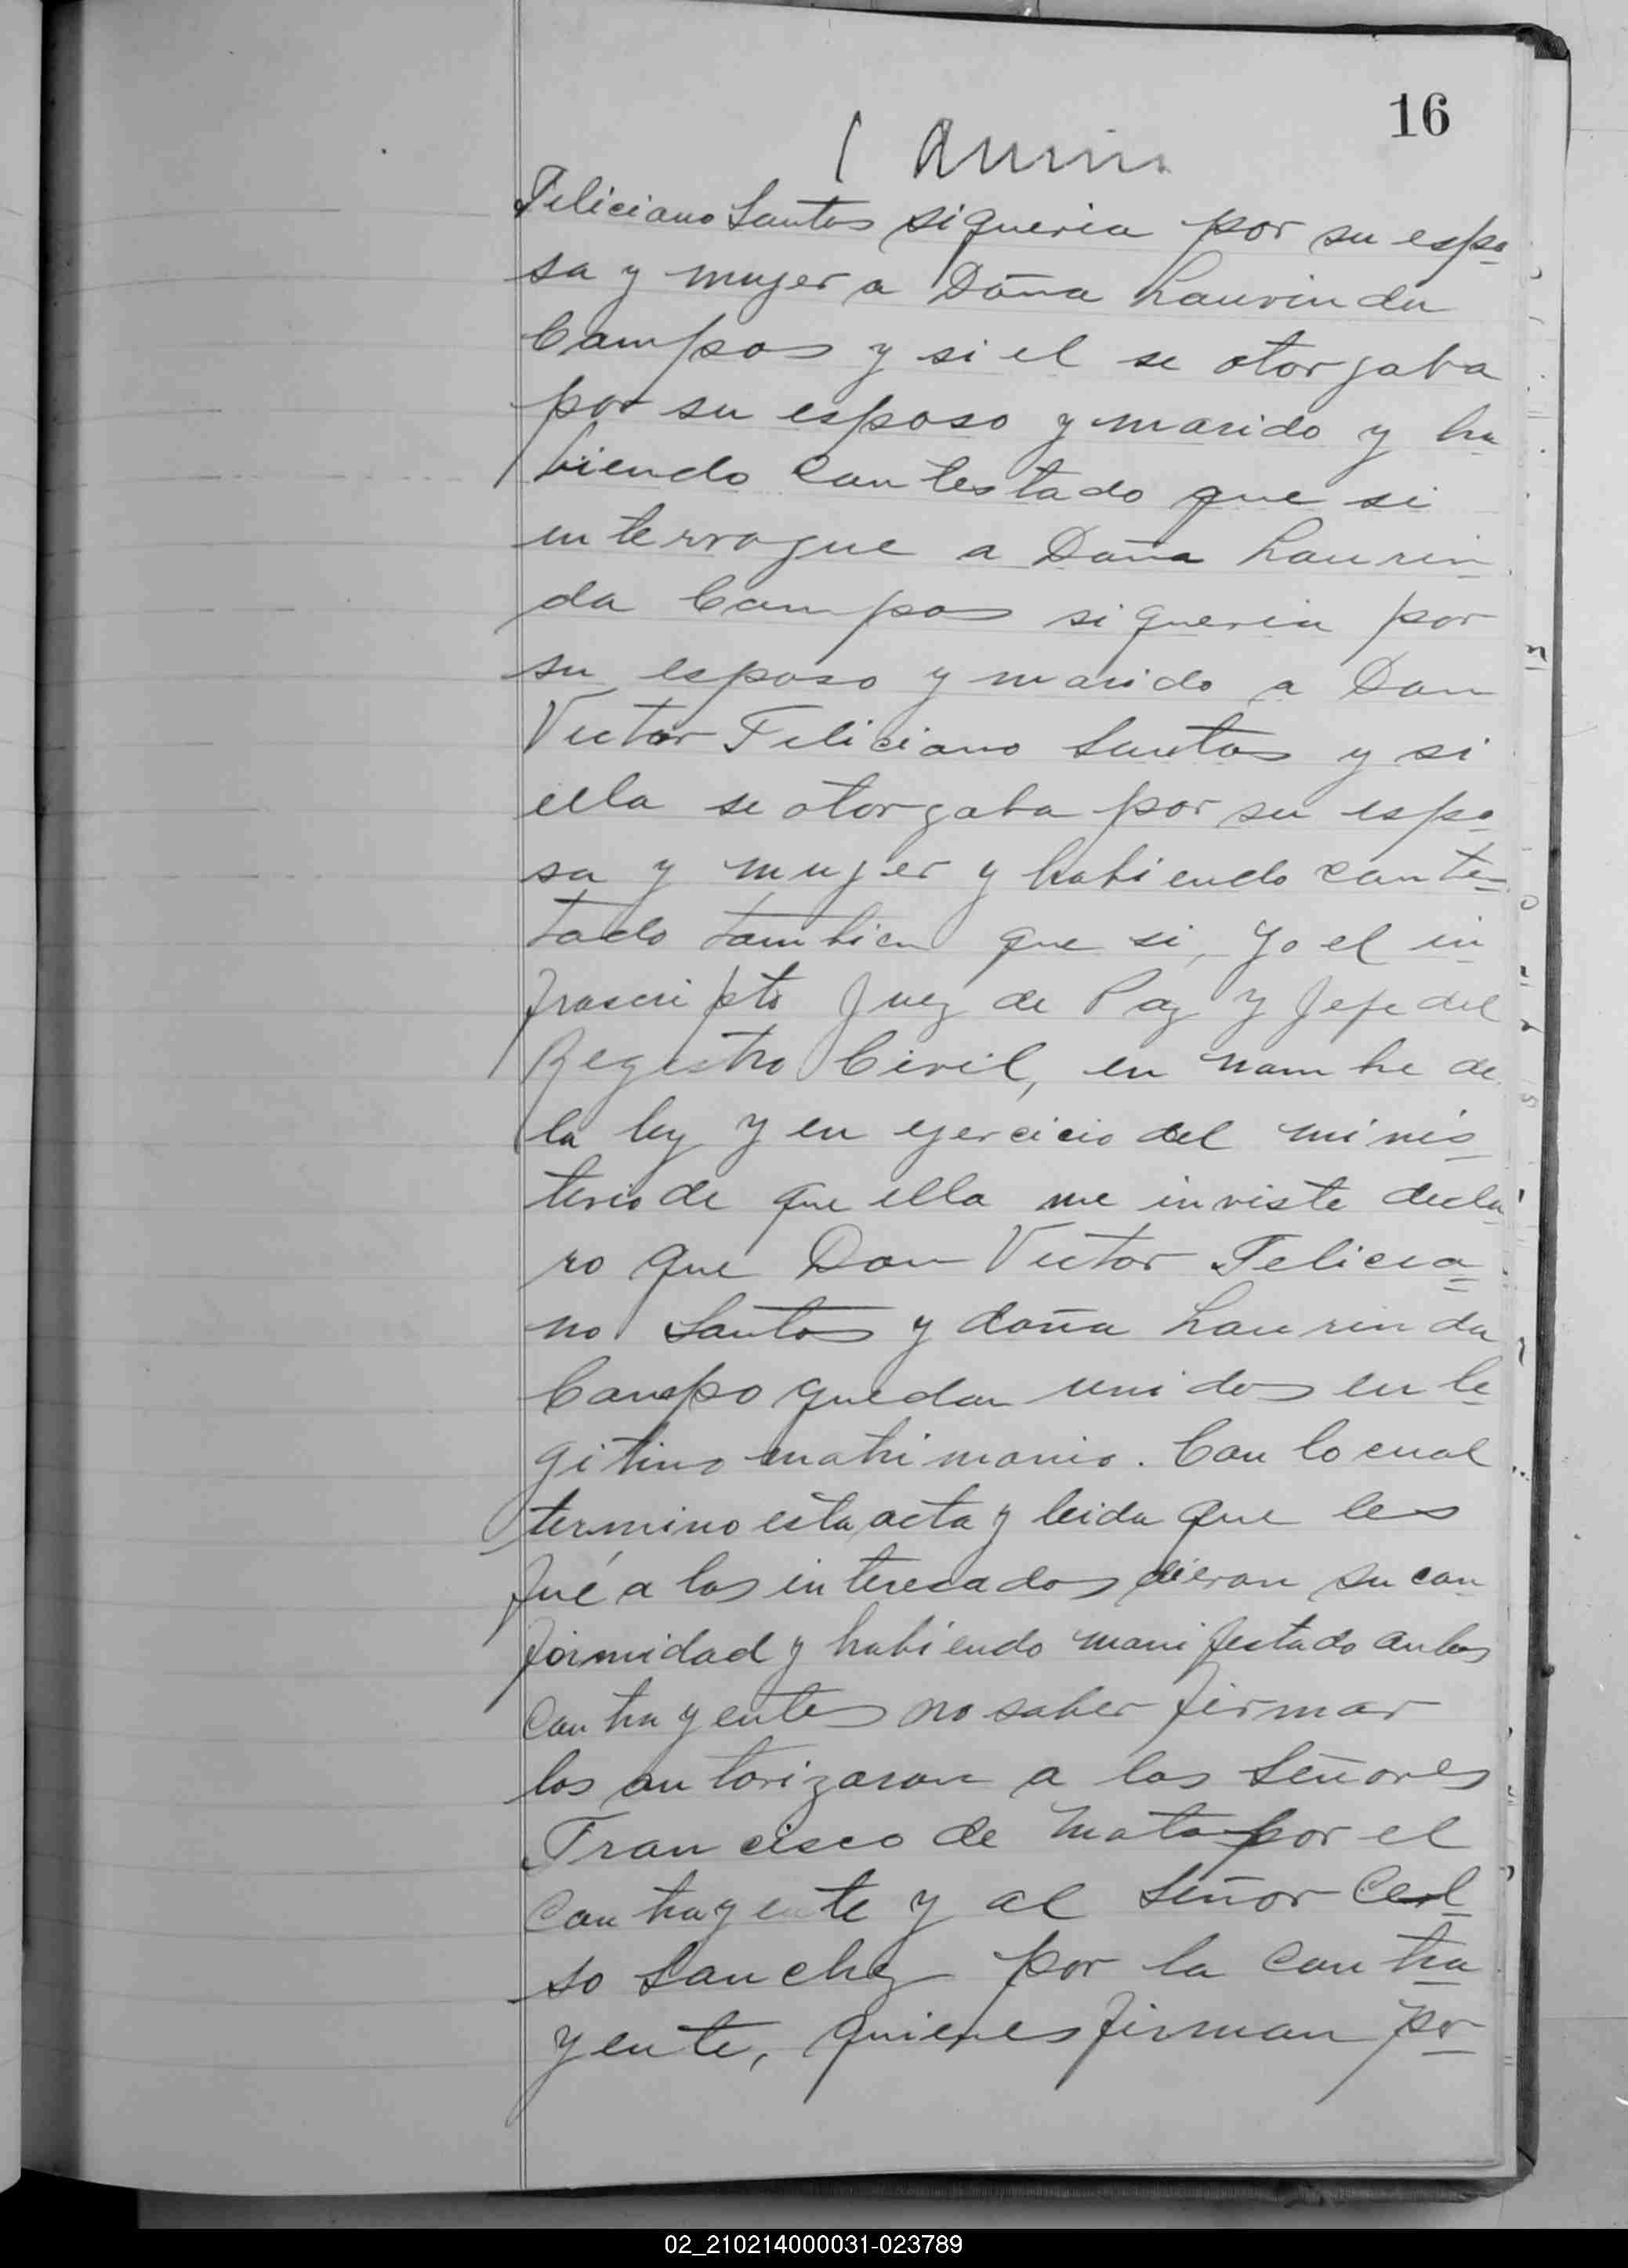 16
Feliciano Santos si queria por su espo
sa y mujer a Doña Laurinda
Campos y si el se otorgaba
por su esposo y marido y ha
biendo contestado que si
interrogue a Doña Laurin
da Campos si queria por
su esposo y marido a Don
Victor Feliciano Santos y si
ella se otorgaba por su espo
sa y mujer y habiendo contes
tado tambien que si, yo el in
frascripto Juez de Paz y Jefe del
Registro Civil, en nombre de
la ley y en ejercicio del minis
terio de que ella me inviste decla
ro que Don Victor Felicia
no Santos y doña Laurinda
Campo quedan unidos en le
gitimo matrimonio. Con lo cual
termino esta acta y leida que les
fué a los interesados dieron su con
formidad y habiendo manifestado anbos
contrayentes no saber firmar
los autorizaron a los Señores
Francisco de Mata por el
contrayente y al Señor Cel
so Sanchez por la contra
yente, quienes firman por
02_210214000031-023789